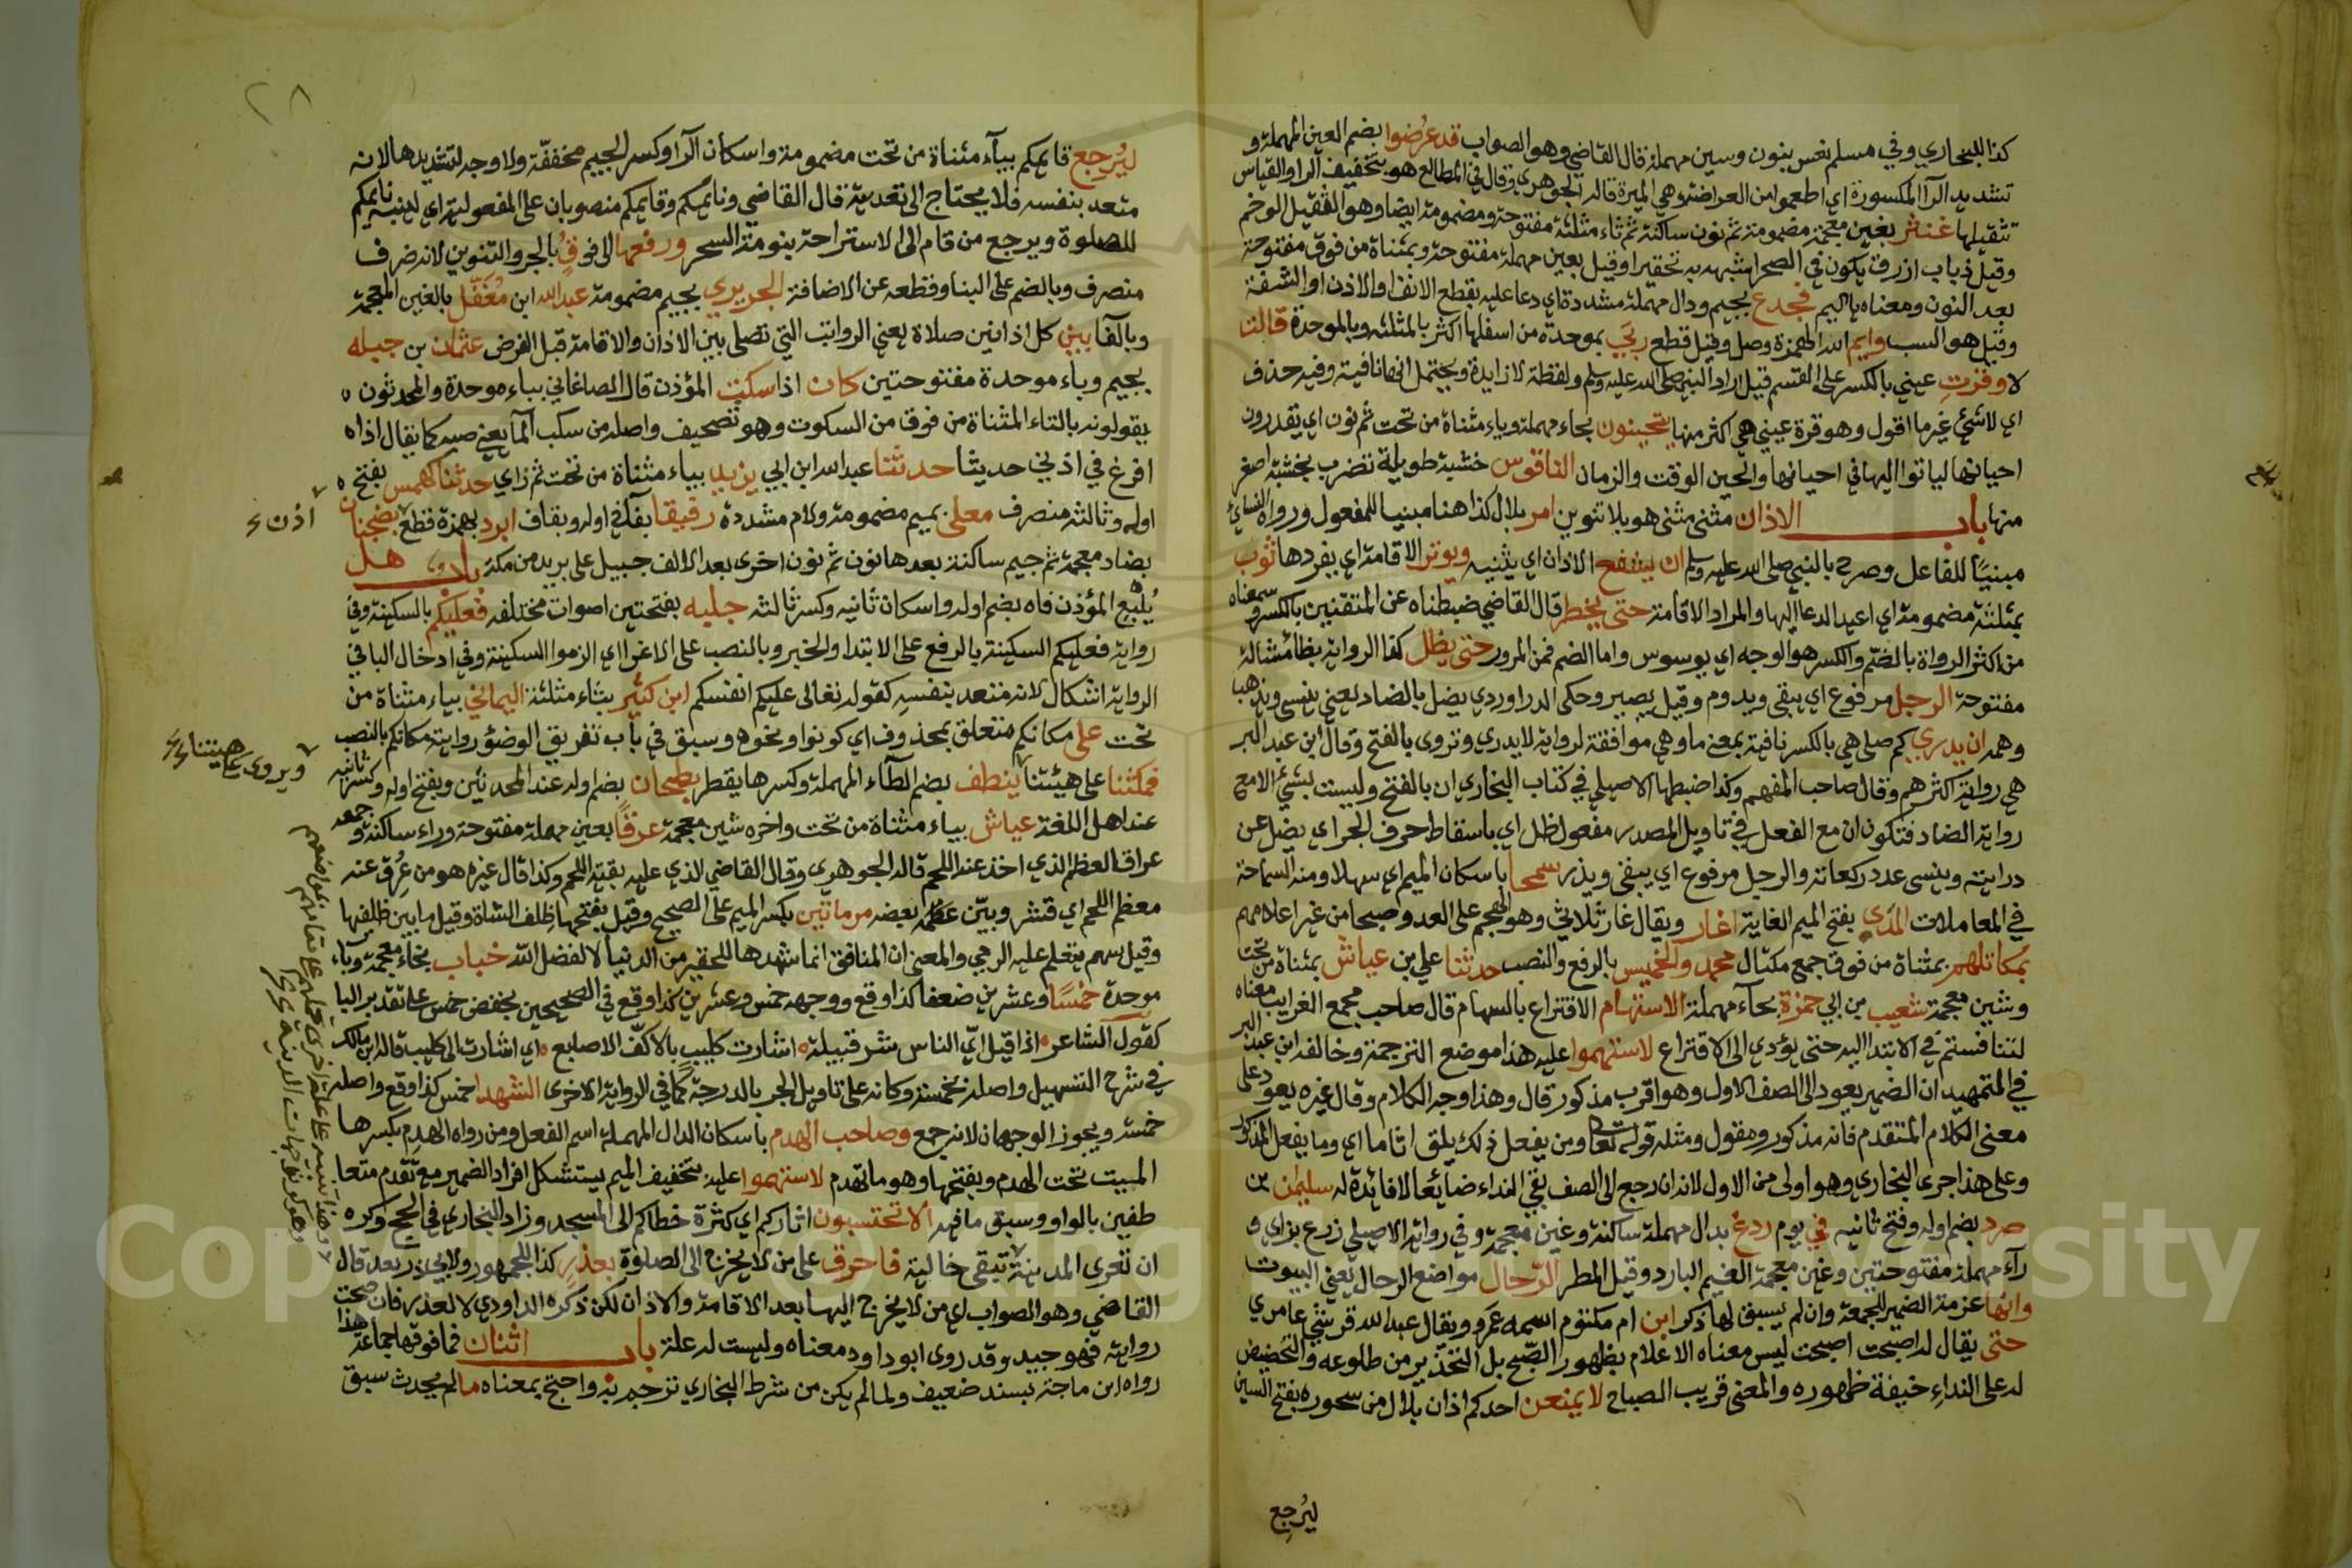 كذا للبخاري وفي مسلم نعس بنون وسين مهملة قال القاضي وهو الصواب قد عرضوا بضم العين المهملة و
تشديد الرآ المكسورة اي اطعموا من العراضة وهي الميرة قاله الجوهري وقال في المطالع هو بتخفيف الرآ والقياس
تثقيلها غنثر بغين معجمة مضمومة ثم نون ساكنة ثم ثاء مثلثة مفتوحة ومضمومة ايضا وهو الثقيل الوخم
وقيل ذباب ازرق يكون في الصحرا شبهه به تحقيرا وقيل بعين مهملة مفتوحة وبمثناة من فوق مفتوحة
بعد النون ومعناه ياليم فجدع بجيم ودال مهملة مشددة اي دعا عليه بقطع الانف او الاذن او الشفة
وقيل هو السب وايم الله الهمزة وصل وقيل قطع ربي بموحدة من اسفلها اكثر بالمثلثة وبالموحدة قالت
لا وقرت عيني بالكسر على القسم قيل اراد النبي صلى الله عليه وسلم ولفظة لا زايدة ويحتمل انها نافية وفيه حذف
اي لا شئ غير ما اقول وهو قرة عيني هي اكثر منها يتحينون بحاء مهملة وياء مثناة من تحت ثم نون اي يقدرون
احيانها لياتوا اليها في احيانها والحين الوقت والزمان الناقوس خشبة طويلة تضرب بخشبة اصغر
منها باب الاذان مثنى مثنى هو بلا تنوين امر بلال كذا هنا مبنيا للمفعول ورواه النساي
مبنيًا للفاعل وصرح بالنبي صلى الله عليه وسلم ان يشفع الاذان اي يثنيه ويوتر الاقامة اي يفردها ثوب
بمثلثة مضمومة اي اعيد الدعا اليها والمراد الاقامة حتى يخطر قال القاضي ضبطناه عن المتقنين بالكسر وسمعناه
من اكثر الرواة بالضم والكسر هو الوجه اي يوسوس واما الضم فمن المرور حتى يظل كذا الرواية بظا مشالة
مفتوحة الرجل مرفوع اي يبقى ويدوم وقيل يصير وحكى الدراوردي يضل بالضاد يعني ينسى ويذهب
وهمه ان يدري كم صلى هي بالكسر نافية بمعنى ما وهي موافقة لرواية لا يدري وتروى بالفتح وقال ابن عبد البر
هي رواية اكثرهم وقال صاحب المفهم وكذا ضبطها الاصيلي في كتاب البخاري ان بالفتح وليست بشئ الا مع
رواية الضاد فتكون ان مع الفعل في تاويل المصدر مفعول ظل اي باسقاط حرف الجر اي يضل عن
درايته وينسى عدد ركعاته والرجل مرفوع اي يبقى ويذر سمحا باسكان الميم اي سهلا ومنه السماحة
في المعاملات المدي بفتح الميم الغاية اغار ويقال غار ثلاثي وهو الهجم على العدو صبحا من غير اعلامهم
بمكاتلهم بمثناة من فوق جمع مكتال محمد والخميس بالرفع والنصب حدثنا علي بن عياش بمثناة من تحت
وشين معجمة شعيب بن ابي حمزة بحآء مهملة الاستهام الاقتراع بالسهام قال صاحب مجمع الغرايب معناه
لتنافستم في الابتدا اليه حتى يؤدي الى الاقتراع لاستهموا عليه هذا موضع الترجمة وخالفه ابن عبد البر
في التمهيد ان الضمير يعود الى الصف الاول وهو اقرب مذكور قال وهذا وجه الكلام وقال غيره يعود على
معنى الكلام المتقدم فانه مذكور ومقول ومثله قوله تعالى ومن يفعل ذلك يلق اثاما اي وما يفعل المذكور
وعلى هذا جرى البخاري وهو اولى من الاول لانه ان رجع الى الصف بقي النداء ضائعا لا فائدة له سليمن بن
صرد بضم اوله وفتح ثانيه في يوم ردغ بدال مهملة ساكنة وغين معجمة وفي رواية الاصيلي رزغ بزاي و
رآء مهملة مفتوحتين وغين معجمة الغيم البارد وقيل المطر الرحال مواضع الرحال يعني البيوت
وانها عزمة الضمير للجمعة وان لم يسبق لها ذكر ابن ام مكتوم اسمه عمرو ويقال عبد الله قرشي عامري
حتى يقال له اصبحت اصبحت ليس معناه الاعلام بظهور الصبح بل التحذير من طلوعه والتحضيض
له على النداء خيفة ظهوره والمعنى قريب الصباح لا يمنعن احدكم اذان بلال من سحوره بفتح السين
ليُرجع
٢٨
ليُرجع قايمكم بيآء مثناة من تحت مضمومة واسكان الرآ وكسر الجيم مخففة ولا وجه لتشديدها لانه
متعد بنفسه فلا يحتاج الى تعدية قال القاضي ونائمكم وقايمكم منصوبان على المفعولية اي لينبه نايمكم
للصلوة ويرجع من قام الى الاستراحة بنومة السحر ورفعها الى فوق بالجر والتنوين لانه ظرف
منصرف وبالضم على البنا وقطعه عن الاضافة الجريري بجيم مضمومة عبد الله ابن مُغَفَّل بالغين المعجمة
وبالفا بين كل اذانين صلاة يعني الرواتب التي تصلى بين الاذان والاقامة قبل الفرض عثمان بن جبله
بجيم وباء موحدة مفتوحتين كان اذا سكت المؤذن قال الصاغاني بباء موحدة والمحدثون
يقولونه بالتاء المثناة من فوق من السكوت وهو تصحيف واصله من سكب الما يعني صبه كما يقال اذا
افرغ في اذني حديثا حدثنا عبد الله ابن ابي يزيد بياء مثناة من تحت ثم زاي حدثنا كهمس بفتح
اوله وثالثه منصرف معلى بميم مضمومة ولام مشددة رفيقا بفآ في اوله وبقاف ابرد بهمزة قطع بضجنان
بضاد معجمة ثم جيم ساكنة بعدها نون ثم نون اخرى بعد الالف جبيل على بريد من مكة باب هل
يُتْبِع المؤذن فاه بضم اوله واسكان ثانيه وكسر ثالثه جلبه بفتحتين اصوات مختلفة فعليكم بالسكينة وفي
رواية فعليكم السكينة بالرفع على الابتدا والخبر وبالنصب على الاغرا اي الزموا السكينة وفي ادخال البا في
الرواية اشكال لانه متعد بنفسه كقوله تعالى عليكم انفسكم ابن كثير بثاء مثلثة اليماني بياء مثناة من
تحت على مكانكم متعلق بمحذوف اي كونوا ونحوه وسبق في باب تفريق الوضؤ رواية مكانكم بالنصب
فمكثنا على هيئتنا ينطف بضم الطآء المهملة وكسرها يقطر بطحان بضم اوله عند المحدثين وبفتح اوله وكسر ثانيه
عند اهل اللغة عياش بياء مثناة من تحت واخره شين معجمة عرقًا بعين مهملة مفتوحة وراء ساكنة و جمعه
عراق العظم الذي اخذ عنه اللحم قاله الجوهري وقال القاضي الذي عليه بقية اللحم وكذا قال غيره هو من عُرق عنه
معظم اللحم اي قشر وبقي على عظمه بعضه مرماتين بكسر الميم على الصحيح وقيل بفتحها ظلف الشاة وقيل ما بين ظلفيها
وقيل سهم يتعلم عليه الرمي والمعنى ان المنافق انما شهدها للحقير من الدنيا لا لفضل الله خباب بخاء معجمة وباء
موحدة خمسًا وعشرين ضعفا كذا وقع ووجهه خمس وعشرين كذا وقع في الصحيحين بخفض خمس على تقدير البا
كقول الشاعر اذا قيل اي الناس شر قبيلة اشارت كليب بالاكف الاصابع اي اشارت الى كليب قاله ابن مالك
في شرح التسهيل واصله بخمسة وكانه على تاويل الجر بالدرجة كما في الرواية الاخرى الشهدا خمس كذا وقع واصله
خمسة ويجوز الوجهان لانه جمع وصاحب الهدم باسكان الدال المهملة اسم الفعل ومن رواه الهدم بكسرها
الميت تحت الهدم وبفتحها وهو ما تهدم لاستهموا عليه بتخفيف الميم يستشكل افراد الضمير مع تقدم متعا
طفين بالواو وسبق ما فيه الا تحتسبون اثاركم اي كثرة خطاكم الى المسجد وزاد البخاري في الحج وكره
ان تعرى المدينة تبقى خالية فاحرق على من لا يخرج الى الصلوة بعذر كذا للجمهور ولابي ذر بعد قال
القاضي وهو الصواب اي من لا يخرج اليها بعد الاقامة والاذان لكن ذكره الداودي لا لعذر فان صحت
روايته فهو جيد وقد روى ابو داود معناه وليست له علة باب اثنان فما فوقها جماعة هذا
رواه ابن ماجة بسند ضعيف ولما لم يكن من شرط البخاري ترجم به واحتج بمعناه ما لم يحدث سبق
اذن
ويروى على هينتنا